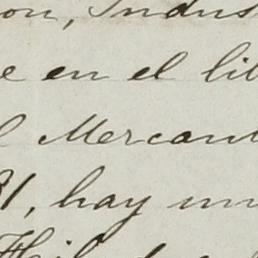 on, Indus
e en el lib
l Mercan
31, hay un